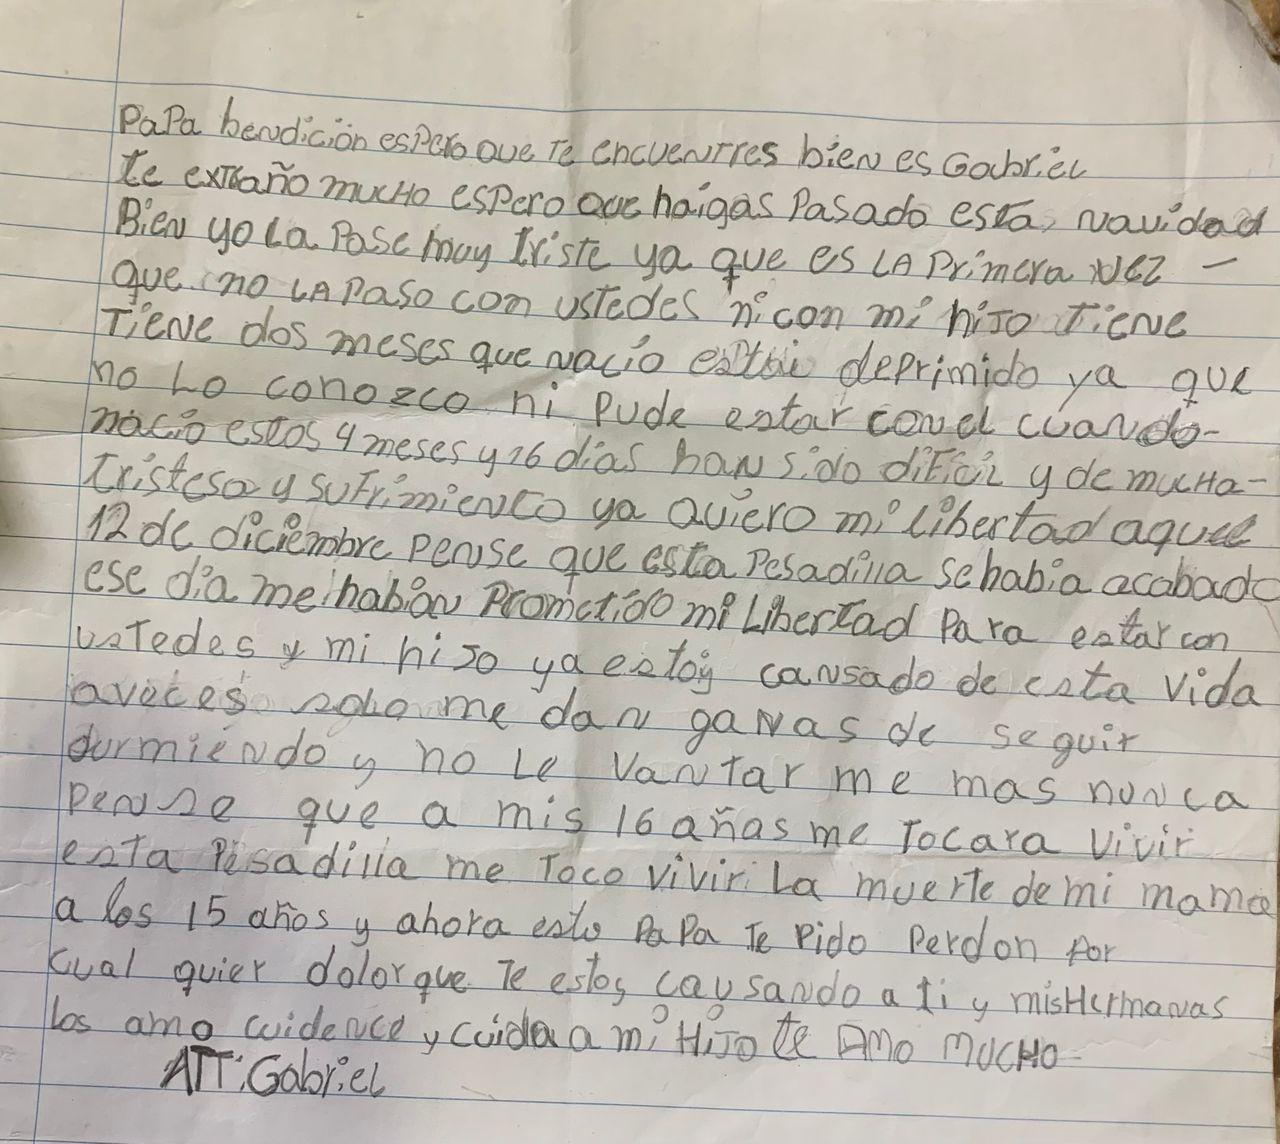 PaPa bendición espero que te encuentres bien es Gabriel
te extraño mucho espero que haigas Pasado esta navidad
Bien yo La Pase muy triste ya que es LA Primera vez -
que no LA Paso con ustedes ni con mi hijo tiene
Tiene dos meses que nacío estoi deprimido ya que
no Lo conozco ni Pude estar con el cuando-
nacio estos 4 meses y 16 dias han sido dificil y de mucha-
tristesa y sufrimiento ya quiero mi libertad aquel
12 de diciembre pense que esta Pesadilla se habia acabado
ese día me habían Prometido mi Libertad Para estar con
ustedes y mi hijo ya estoy cansado de esta vida
aveces solo me dan ganas de seguir
durmiendo y no Le vantar me mas nunca
Pense que a mis 16 añas me Tocara Vivir
esta Pesadilla me Toco vivir La muerte de mi mama
a los 15 años y ahora esto PaPa Te Pido Perdon Por
cual quier dolor que Te estoy causando a ti y mis Hermanas
los amo cuidence y cuida a mi Hijo te Amo mucho-
ATT: Gabriel